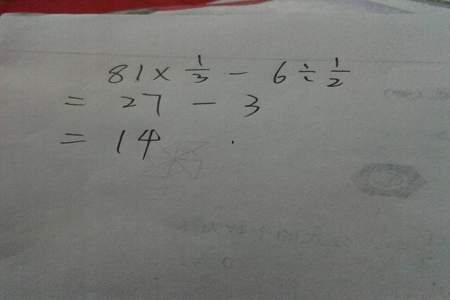 81 × 1/3 - 6 ÷ 1/2
= 27 - 3
= 14